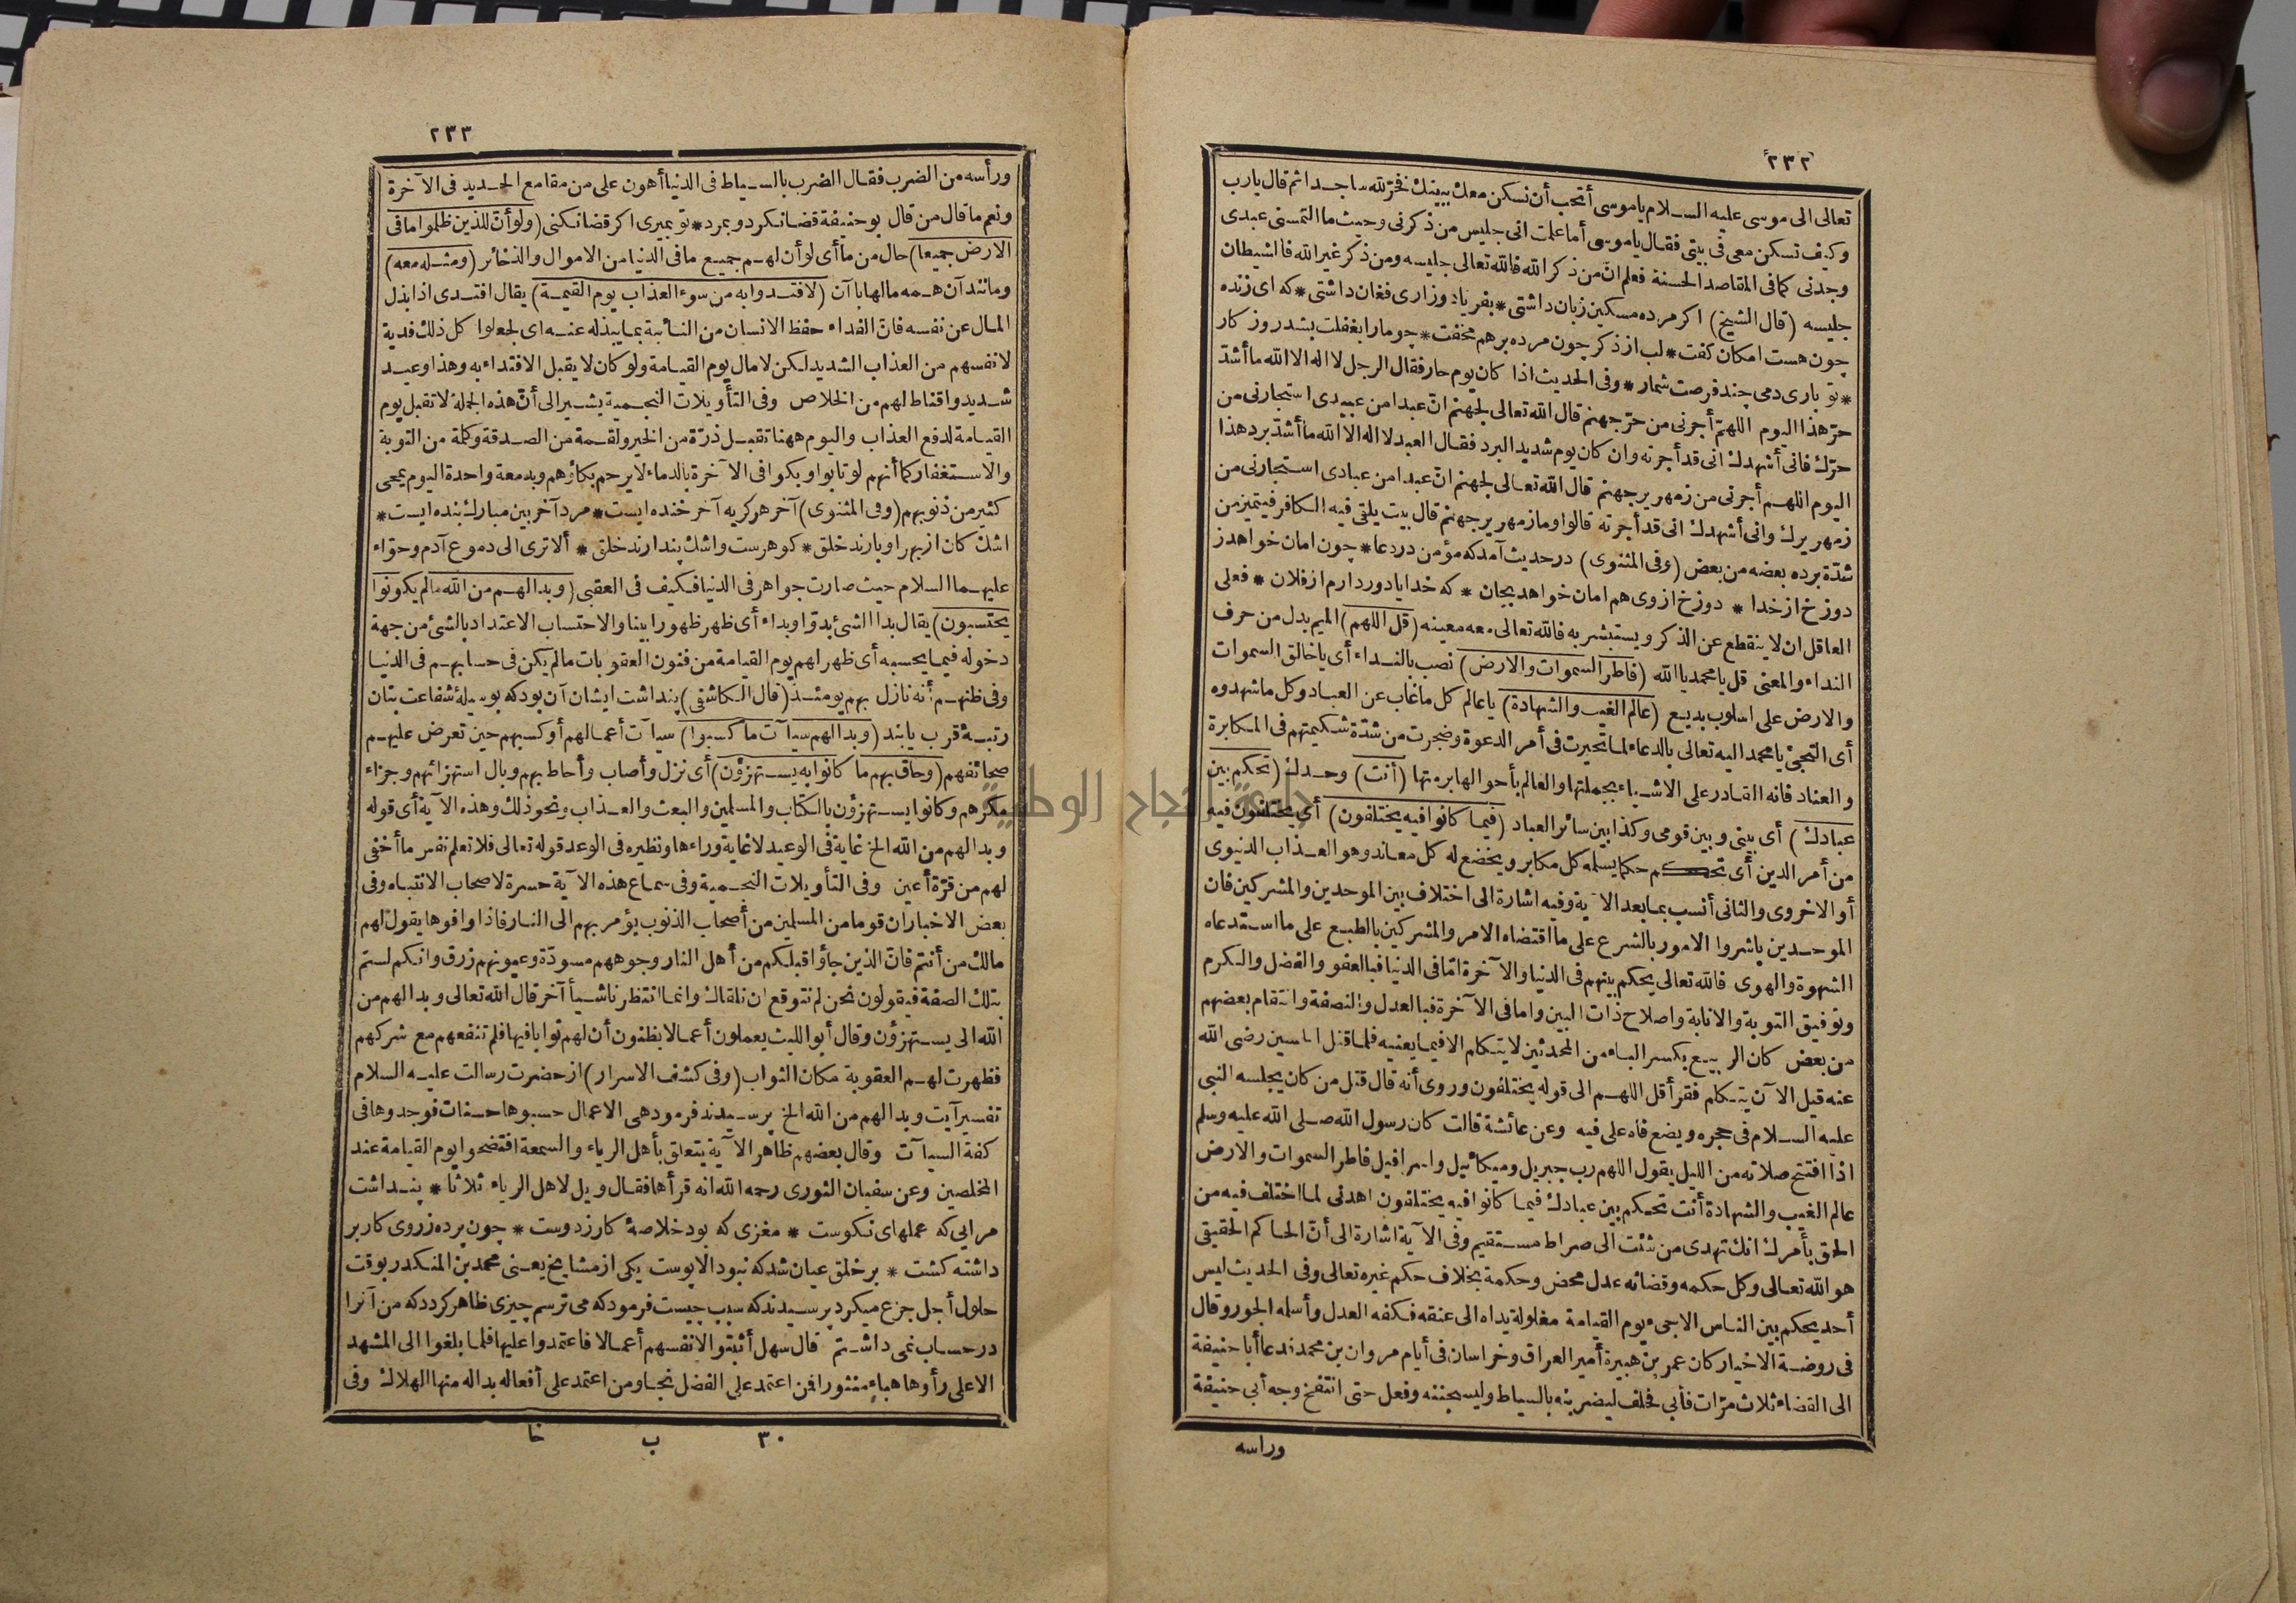 ٢٣٢
تعالى الى موسى عليه السلام يا موسى أتحب أن نسكن معك بيتك فخرّ لله ساجدا ثم قال يارب
وكيف تسكن معى فى بيتى فقال يا موسى أما علمت انى جليس من ذكرنى وحيث ما التمسنى عبدى
وجدنى كما فى المقاصد الحسنة فعلم انّ من ذكر الله فالله تعالى جليسه ومن ذكر غير الله فالشيطان
جليسه (قال الشيخ) اكر مرده مسكين زبان داشتى * بفرياد وزارى فغان داشتى * كه اى زنده
چون هست امكان كفت * لب از ذكر چون مرده برهم مخفت * چو مارا بغفلت بشد روز كار
* تو بارى دمى چند فرصت شمار * وفى الحديث اذا كان يوم حار فقال الرجل لا اله الا الله ما أشدّ
حرّ هذا اليوم اللهمّ أجرنى من حرّ جهنم قال الله تعالى لجهنم انّ عبدا من عبيدى استجارنى من
حرّك فانى أشهدك انى قد أجرته وان كان يوم شديد البرد فقال العبد لا اله الا الله ما أشدّ برد هذا
اليوم اللهم أجرنى من زمهرير جهنم قال الله تعالى لجهنم انّ عبدا من عبادى استجارنى من
زمهريرك وانى أشهدك انى قد أجرته قالوا وما زمهرير جهنم قال بيت يلقى فيه الكافر فيتميز من
شدّة برده بعضه من بعض (وفى المثنوى) در حديث آمد كه مؤمن در دعا * چون امان خواهد ز
دوزخ از خدا * دوزخ از وى هم امان خواهد بجان * كه خدايا دور دارم از فلان * فعلى
العاقل ان لا ينقطع عن الذكر ويستبشر به فالله تعالى معه معينه (قل اللهم) الميم بدل من حرف
النداء والمعنى قل يا محمد يا الله (فاطر السموات والارض) نصب بالنداء أى يا خالق السموات
والارض على اسلوب بديع (عالم الغيب والشهادة) يا عالم كل ما غاب عن العباد وكل ما شهدوه
أى التجئ يا محمد اليه تعالى بالدعاء لما تحيرت فى أمر الدعوة وضجرت من شدّة شكيمتهم فى المكابرة
والعناد فانه القادر على الاشياء بجملتها والعالم بأحوالها برمتها (أنت) وحدك (تحكم بين
عبادك) أى بينى وبين قومى وكذا بين سائر العباد (فيما كانوا فيه يختلفون) أى يختلفون فيه
من أمر الدين أى تحكم حكما يسلمه كل مكابر ويخضع له كل معاند وهو العذاب الدنيوى
أو الاخروى والثانى أنسب بما بعد الآية وفيه اشارة الى اختلاف بين الموحدين والمشركين فان
الموحدين باشروا الامور بالشرع على ما اقتضاه الامر والمشركين بالطبع على ما استدعاه
الشهوة والهوى فالله تعالى يحكم بينهم فى الدنيا والآخرة امّا فى الدنيا فبالعفو والفضل والكرم
وتوفيق التوبة والانابة واصلاح ذات البين واما فى الآخرة فبالعدل والنصفة وانتقام بعضهم
من بعض كان الربيع بكسر الباء من المحدثين لا يتكلم الا فيما يعنيه فلما قتل الحسين رضى الله
عنه قيل الآن يتكلم فقرأ قل اللهم الى قوله يختلفون وروى أنه قال قتل من كان يجلسه النبى
عليه السلام فى حجره ويضع فاه على فيه وعن عائشة قالت كان رسول الله صلى الله عليه وسلم
اذا افتتح صلاته من الليل يقول اللهم رب جبريل وميكائيل واسرافيل فاطر السموات والارض
عالم الغيب والشهادة أنت تحكم بين عبادك فيما كانوا فيه يختلفون اهدنى لما اختلف فيه من
الحق بأمرك انك تهدى من شئت الى صراط مستقيم وفى الآية اشارة الى أنّ الحاكم الحقيقى
هو الله تعالى وكل حكمه وقضائه عدل محض وحكمة بخلاف حكم غيره تعالى وفى الحديث ليس
أحد يحكم بين الناس الا جىء يوم القيامة مغلولة يداه الى عنقه فكفه العدل وأسلمه الجور وقال
فى روضة الاخيار كان عمر بن هبيرة أمير العراق وخراسان فى أيام مروان بن محمد فدعا أبا حنيفة
الى القضاء ثلاث مرّات فأبى فحلف ليضربنه بالسياط وليسجننه وفعل حتى انتفخ وجه أبى حنيفة
وراسه
٢٣٣
ورأسه من الضرب فقال الضرب بالسياط فى الدنيا أهون على من مقامع الحديد فى الآخرة
ونعم ما قال من قال بو حنيفة قضا نكرد وبمرد * تو بميرى اكر قضا نكنى (ولو أنّ للذين ظلموا ما فى
الارض جميعا) حال من ما أى لو أن لهم جميع ما فى الدنيا من الاموال والذخائر (ومثله معه)
ومانند آن همه مالها با آن (لافتدوا به من سوء العذاب يوم القيمة) يقال افتدى اذا بذل
المال عن نفسه فانّ الفداء حفظ الانسان من النائبة بما يبذله عنه اى لجعلوا كل ذلك فدية
لانفسهم من العذاب الشديد لكن لا مال يوم القيامة ولو كان لا يقبل الافتداء به وهذا وعيد
شديد واقناط لهم من الخلاص وفى التأويلات النجمية يشير الى أنّ هذه الجملة لا تقبل يوم
القيامة لدفع العذاب واليوم ههنا تقبل ذرّة من الخير ولقمة من الصدقة وكلمة من التوبة
والاستغفار كما أنهم لو تابوا وبكوا فى الآخرة بالدماء لا يرحم بكاؤهم وبدمعة واحدة اليوم يمحى
كثير من ذنوبهم (وفى المثنوى) آخر هر كريه آخر خنده ايست * مرد آخر بين مبارك بنده ايست *
اشك كان از بهر او بارند خلق * كوهرست واشك پندارند خلق * ألا ترى الى دموع آدم وحوّاء
عليهما السلام حيث صارت جواهر فى الدنيا فكيف فى العقبى (وبدا لهم من الله ما لم يكونوا
يحتسبون) يقال بدا الشئ بدوّا وبداء أى ظهر ظهورا بينا والاحتساب الاعتداد بالشئ من جهة
دخوله فيما يحسبه أى ظهر لهم يوم القيامة من فنون العقوبات ما لم يكن فى حسابهم فى الدنيا
وفى ظنهم أنه نازل بهم يومئذ (قال الكاشفى) پنداشت ايشان آن بود كه بوسيلهٔ شفاعت بتان
رتبهٔ قرب يابند (وبدا لهم سيآت ما كسبوا) سيآت أعمالهم أو كسبهم حين تعرض عليهم
صحائفهم (وحاق بهم ما كانوا به يستهزؤن) أى نزل وأصاب وأحاط بهم وبال استهزائهم وجزاء
مكرهم وكانوا يستهزؤن بالكتاب والمسلمين والبعث والعذاب ونحو ذلك وهذه الآية أى قوله
وبدا لهم من الله الخ غاية فى الوعيد لا غاية وراءها ونظيره فى الوعد قوله تعالى فلا تعلم نفس ما أخفى
لهم من قرّة أعين وفى التأويلات النجمية وفى سماع هذه الآية حسرة لاصحاب الانتباه وفى
بعض الاخبار ان قوما من المسلمين من أصحاب الذنوب يؤمر بهم الى النار فاذا وافوها يقول لهم
مالك من أنتم فانّ الذين جاؤا قبلكم من أهل النار وجوههم مسودّة وعيونهم زرق وانكم لستم
بتلك الصفة فيقولون نحن لم نتوقع ان نلقاك وانما انتظرنا شيأ آخر قال الله تعالى وبدا لهم من
الله الى يستهزؤن وقال أبو الليث يعملون أعمالا يظنون أن لهم ثوابا فيها فلم تنفعهم مع شركهم
فظهرت لهم العقوبة مكان الثواب (وفى كشف الاسرار) از حضرت رسالت عليه السلام
تفسير آيت وبدا لهم من الله الخ پرسيدند فرمود هى الاعمال حسبوها حسنات فوجدوها فى
كفة السيآت وقال بعضهم ظاهر الآية يتعلق بأهل الرياء والسمعة افتضحوا يوم القيامة عند
المخلصين وعن سفيان الثورى رحمه الله انه قرأها فقال ويل لاهل الرياء ثلاثا * پنداشت
مرايى كه عملهاى نكوست * مغزى كه بود خلاصهٔ كار ز دوست * چون پرده ز روى كار بر
داشته كشت * بر خلق عيان شد كه نبود الا پوست يكى از مشايخ يعنى محمد بن المنكدر بوقت
حلول أجل جزع ميكرد پرسيدند كه سبب چيست فرمود كه مى ترسم چيزى ظاهر كردد كه من آنرا
در حساب نمى داشتم قال سهل أثبتوا لانفسهم أعمالا فاعتمدوا عليها فلما بلغوا الى المشهد
الاعلى رأوها هباء منثورا فمن اعتمد على الفضل نجا ومن اعتمد على أفعاله بدا له منها الهلاك وفى
٣٠ ب خا
جامعة النجاح الوطنية